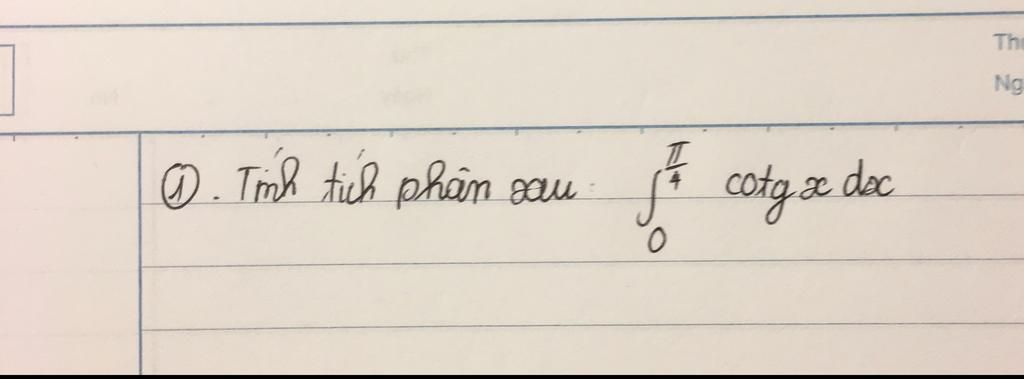 Th
Ng
①. Tính tích phân sau: ∫₀^(π/4) cotg x dx